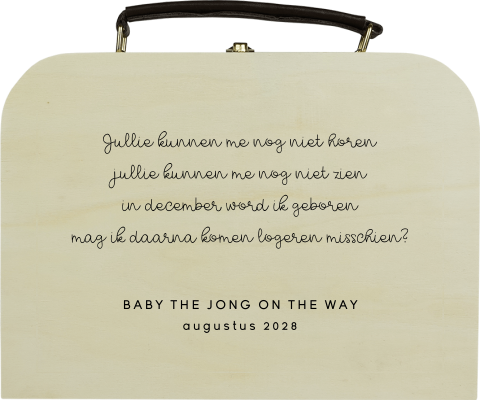 Jullie kunnen me nog niet horen
jullie kunnen me nog niet zien
in december word ik geboren
mag ik daarna komen logeren misschien?
BABY THE JONG ON THE WAY
augustus 2028